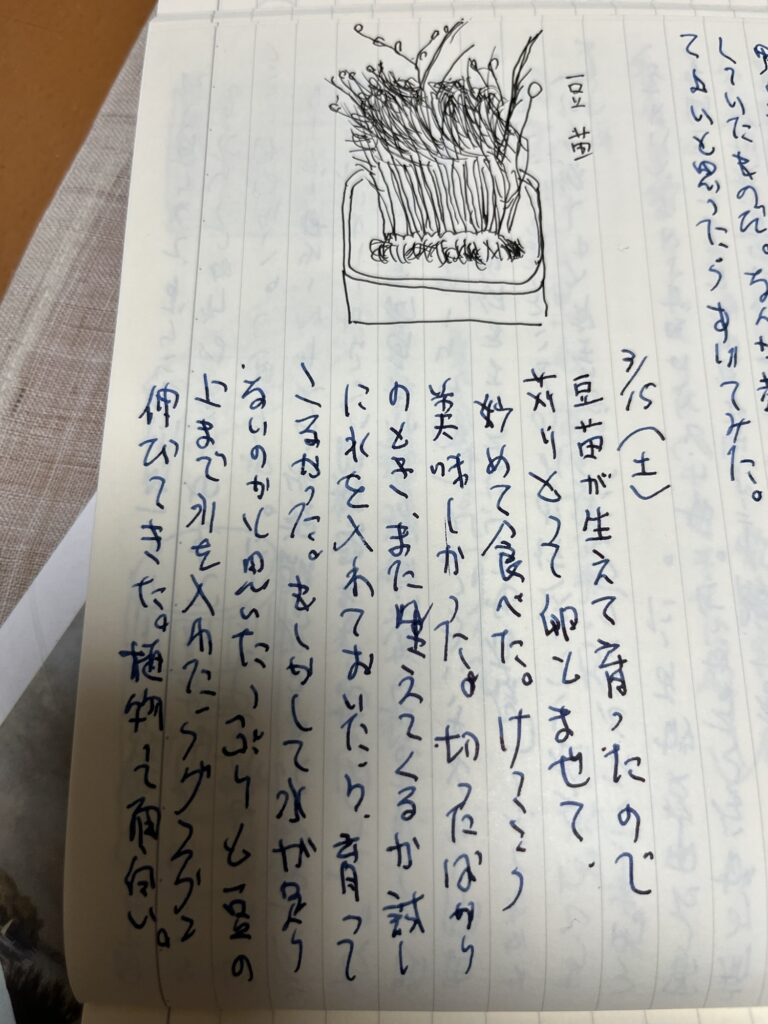 していたものだ。なんか考
てよいと思ったらあけてみた。
豆苗
3/15(土)
豆苗が生えて育ったので
刈りとって卵とまぜて、
炒めて食べた。けっこう
美味しかった。切ったばかり
のとき、また生えてくるか試し
に水を入れておいたら、育って
くるかった。もしかして水が足り
ないのかと思いたっぷりと豆の
上まで水を入れたらグングン
伸びてきた。植物って面白い。